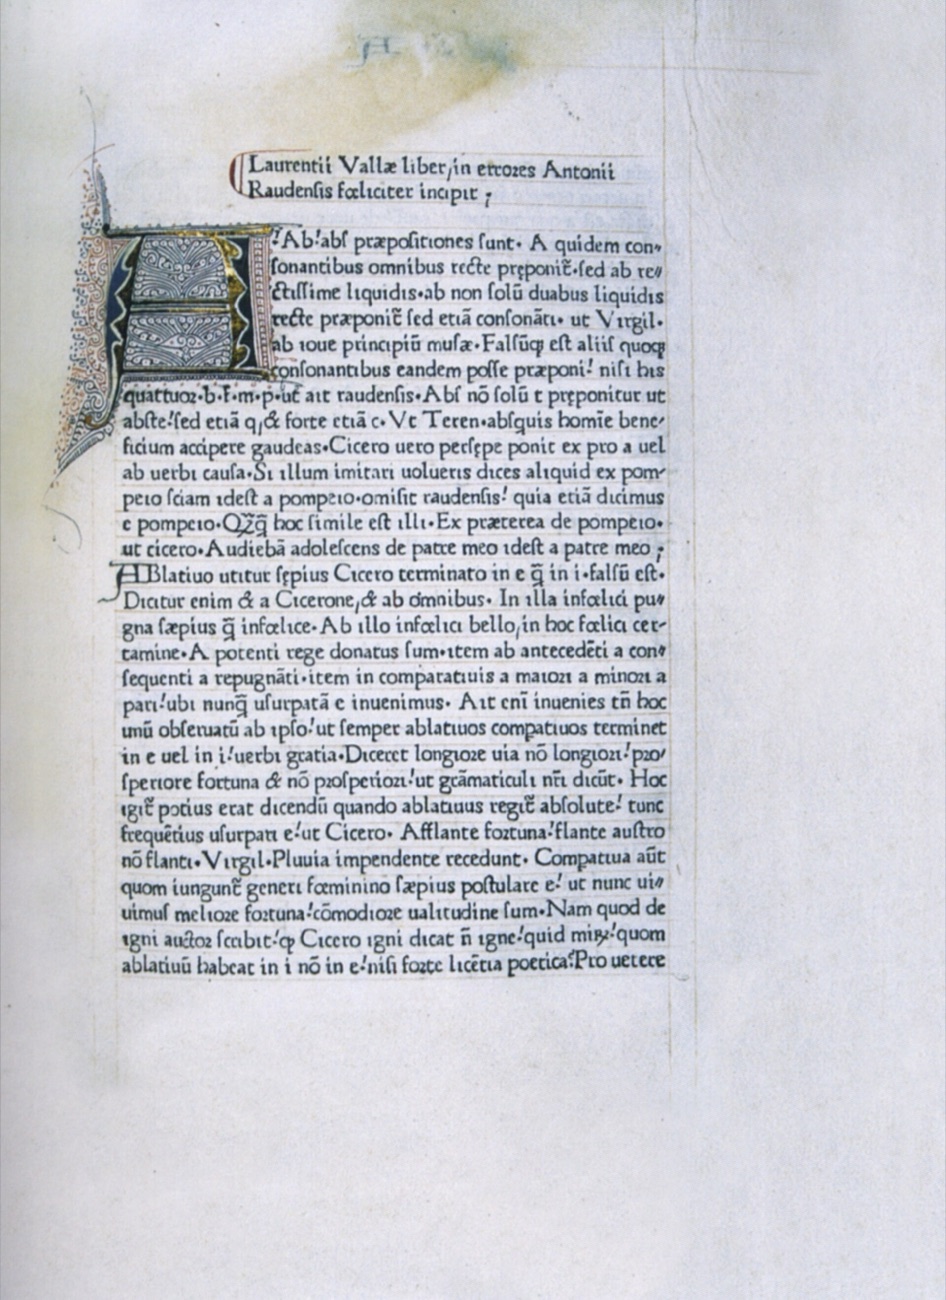 Laurentii Vallæ liber,in errores Antonii
Raudensis fœliciter incipit ;
A !Ab!abſ præpoſitiones ſunt· A quidem con⸗
ſonantibus omnibus recte pręponit᷑·ſed ab re⸗
ctiſſime liquidis·ab non ſolū duabus liquidis
recte præponit᷑ ſed etiā conſonāti· ut Virgil·
ab ıoue principiū muſæ·Falſūqꝫ eſt aliiſ quoqꝫ
conſonantibus eandem poſſe præponi! niſi his
quattuor·b·f·m·p·ut aıt raudenſis·Abſ nō ſolū t pręponitur ut
abſte!ſed etiā q,& forte etiā c·Vt Teren·abſquis homīe bene⸗
ficium accipere gaudeas·Cicero uero perſępe ponit ex pro a uel
ab uerbi cauſa·Si illum imitari uolueris dices aliquid ex pom⸗
peio ſciam ıdeſt a pompeıo·omiſit raudenſis! quia etiā dicimus
e pompeıo·Qꝫq̄ hoc ſimile eſt illi·Ex præterea de pompeıo·
ut cicero·Audiebā adoleſcens de patre meo ıdeſt a patre meo ;
ABlatiuo utitur ſępius Cicero terminato in e q̄ in i·falſū eſt·
Dicitur enim & a Cicerone,& ab omnibus· In illa infœlici pu⸗
gna ſæpius q̄ infœlice·Ab illo infœlici bello,in hoc fœlici cer⸗
tamine·A potenti rege donatus ſum·ıtem ab antecedēti a con⸗
ſequenti a repugnāti·item in comparatiuis a maiori a minori a
pari!ubi nunq̄ uſurpatā e inuenimus· Ait enī inuenies tn̄ hoc
unū obſeruatū ab ıpſo!ut ſemper ablatiuos compatiuos terminet
in e uel in i!uerbi gratia·Diceret longiore uia nō longiori!pro⸗
ſperiore fortuna & nō proſperiori!ut grāmaticuli nr̄i dicūt· Hoc
ıgit᷑ potius erat dicendū quando ablatiuus regit᷑ abſolute! tunc
frequētius uſurpari e!ut Cicero· Afflante fortuna!flante auſtro
nō flanti·Virgil·Pluuia impendente recedunt· Compatiua aūt
quom iungunt᷑ generi fœminino ſæpius poſtulare e! ut nunc ui⸗
uimuſ meliore fortuna!cōmodiore ualitudine ſum·Nam quod de
ıgni auctor ſcribit!ꝙ Cicero igni dicat n̄ ıgne!quid miꝝ!quom
ablatiuū habeat in i nō in e!niſi forte licētia poetica?Pro uetere